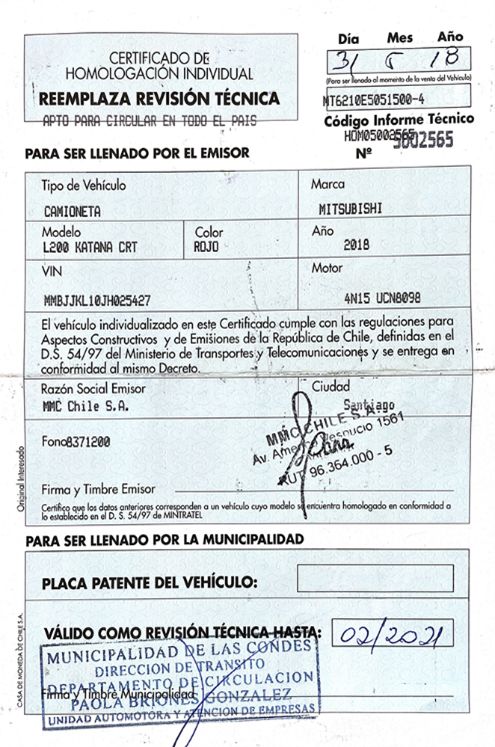 CERTIFICADO DE
HOMOLOGACIÓN INDIVIDUAL
REEMPLAZA REVISIÓN TÉCNICA
APTO PARA CIRCULAR EN TODO EL PAIS
Día Mes Año
31 5 18
(Para ser llenado al momento de la venta del Vehículo)
MT6210E5051500-4
Código Informe Técnico
HOM05002565
Nº 5002565
PARA SER LLENADO POR EL EMISOR
Tipo de Vehículo Marca
CAMIONETA MITSUBISHI
Modelo Color Año
L200 KATANA CRT ROJO 2018
VIN Motor
MMBJJKL10JH025427 4N15 UCN8098
El vehículo individualizado en este Certificado cumple con las regulaciones para
Aspectos Constructivos y de Emisiones de la República de Chile, definidas en el
D.S. 54/97 del Ministerio de Transportes y Telecomunicaciones y se entrega en
conformidad al mismo Decreto.
Razón Social Emisor Ciudad
MMC Chile S.A. Santiago
MMC CHILE S.A.
Av. Americo Vespucio 1561
RUT 96.364.000 - 5
Fono8371200
Firma y Timbre Emisor
Certifico que los datos anteriores corresponden a un vehículo cuyo modelo se encuentra homologado en conformidad a
lo establecido en el D. S. 54/97 de MINTRATEL
Original Interesado
PARA SER LLENADO POR LA MUNICIPALIDAD
PLACA PATENTE DEL VEHÍCULO:
VÁLIDO COMO REVISIÓN TÉCNICA HASTA: 02/2021
MUNICIPALIDAD DE LAS CONDES
DIRECCION DE TRANSITO
DEPARTAMENTO DE CIRCULACION
Firma y Timbre Municipalidad
PAOLA BRIONES GONZALEZ
UNIDAD AUTOMOTORA Y ATENCION DE EMPRESAS
CASA DE MONEDA DE CHILE S.A.